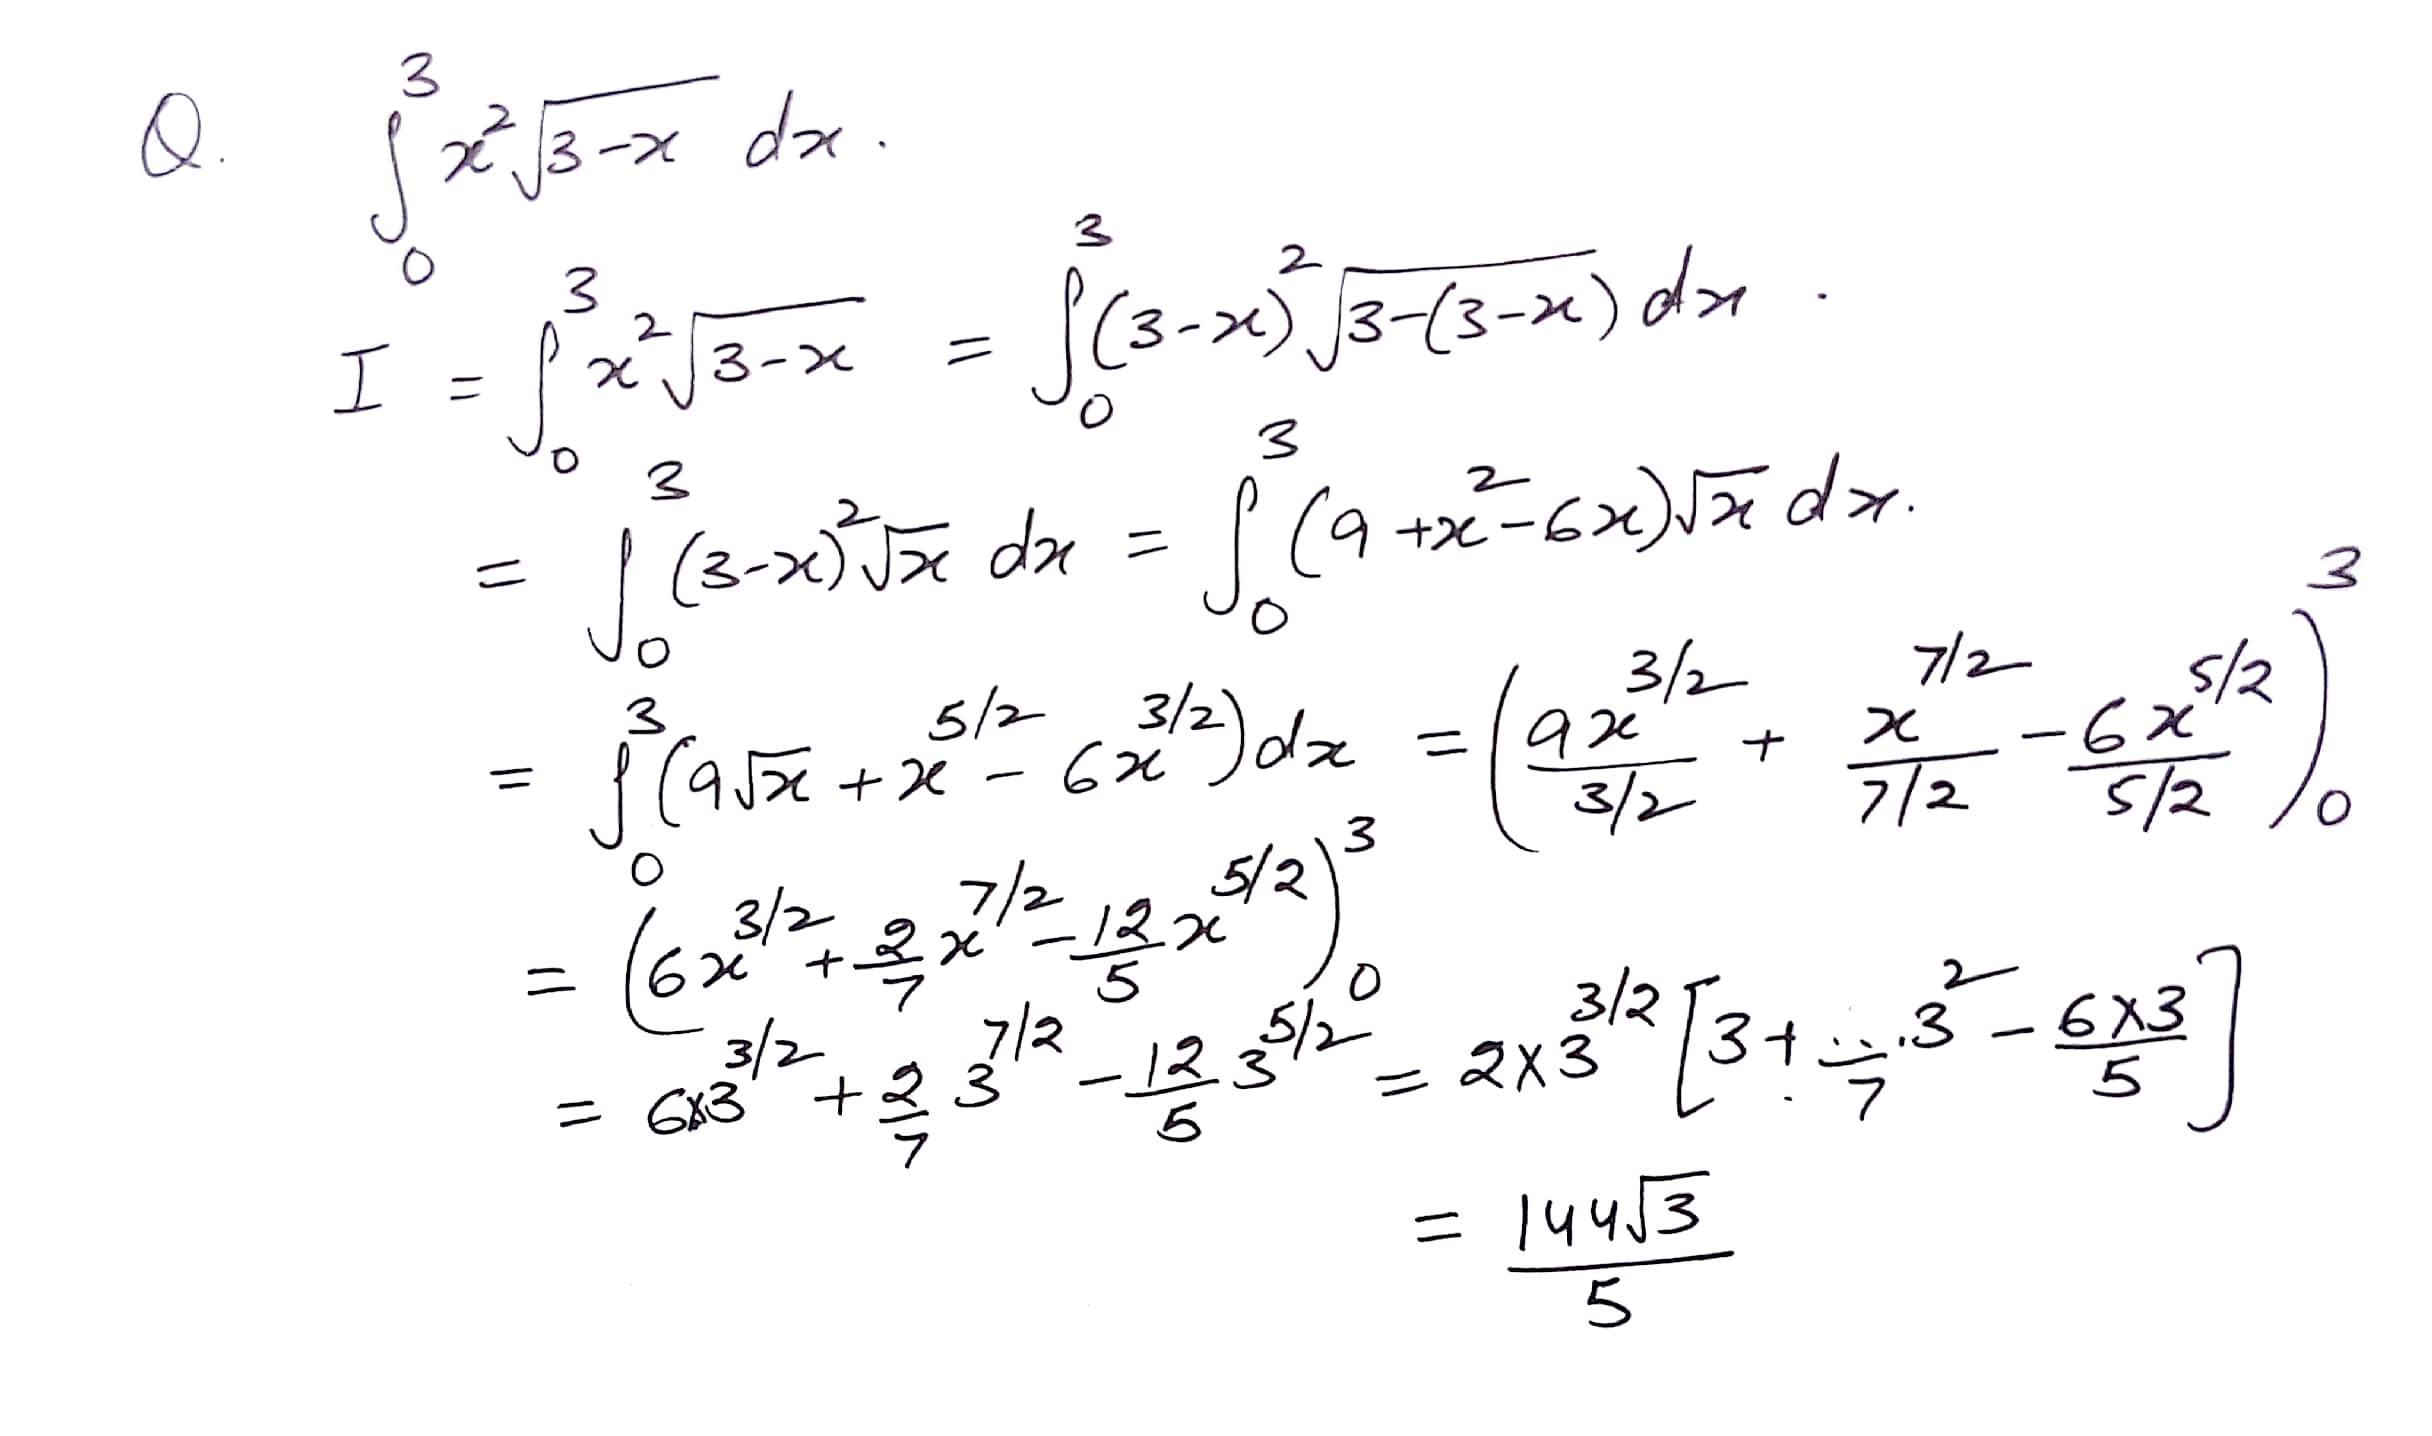 Q. ∫₀³ x²√(3-x) dx .
I = ∫₀³ x²√(3-x) = ∫₀³ (3-x)²√(3-(3-x)) dx .
= ∫₀³ (3-x)²√x dx = ∫₀³ (9 + x² - 6x)√x dx.
= ∫₀³ (9√x + x^(5/2) - 6x^(3/2)) dx = (9x^(3/2)/(3/2) + x^(7/2)/(7/2) - 6x^(5/2)/(5/2))₀³
= (6x^(3/2) + 2/7 x^(7/2) - 12/5 x^(5/2))₀³
= 6×3^(3/2) + 2/7 3^(7/2) - 12/5 3^(5/2) = 2×3^(3/2) [3 + /7 · 3² - 6×3/5]
= 144√3/5